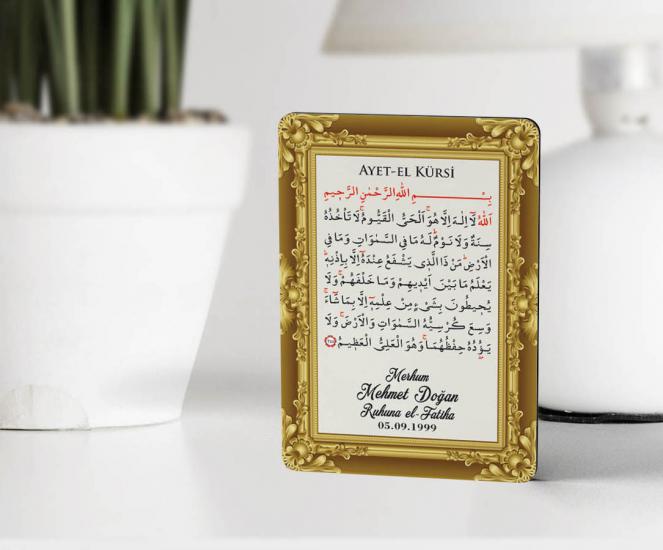 AYET-EL KÜRSİ
بِسْــــــــــمِ اللّٰهِ الرَّحْمٰنِ الرَّح۪يمِ
اَللّٰهُ لَٓا اِلٰهَ اِلَّا هُوَۚ اَلْحَيُّ الْقَيُّومُۚ لَا تَأْخُذُهُ
سِنَةٌ وَلَا نَوْمٌۜ لَهُ مَا فِي السَّمٰوَاتِ وَمَا فِي
الْاَرْضِۜ مَنْ ذَا الَّذ۪ي يَشْفَعُ عِنْدَهُٓ اِلَّا بِاِذْنِه۪ۜ
يَعْلَمُ مَا بَيْنَ اَيْد۪يهِمْ وَمَا خَلْفَهُمْۚ وَلَا
يُح۪يطُونَ بِشَيْءٍ مِنْ عِلْمِه۪ٓ اِلَّا بِمَا شَٓاءَۚ
وَسِعَ كُرْسِيُّهُ السَّمٰوَاتِ وَالْاَرْضَۚ وَلَا
يَؤُ۫دُهُ حِفْظُهُمَاۚ وَهُوَ الْعَلِيُّ الْعَظ۪يمُ ٢٥٥
Merhum
Mehmet Doğan
Ruhuna el-Fatiha
05.09.1999